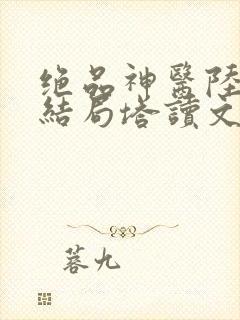 绝品神醫陸
結局塔讀文
蓉九